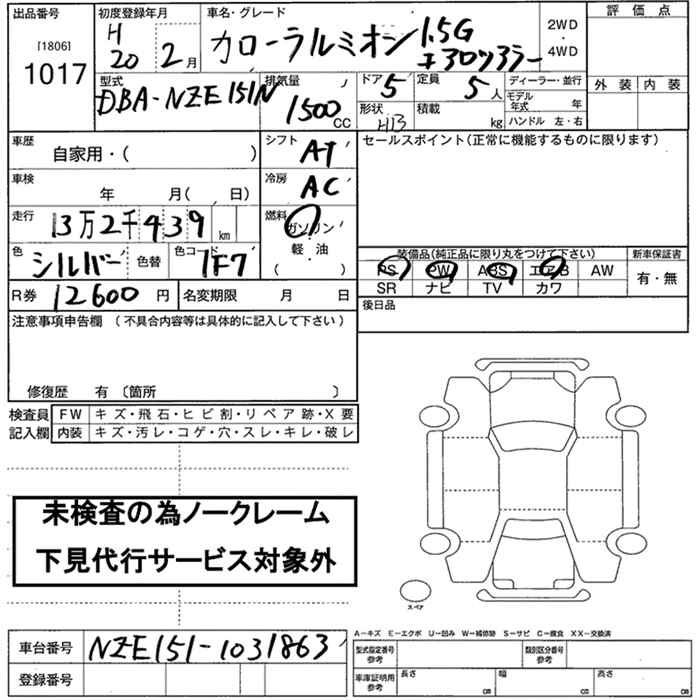 出品番号 初度登録年月 車名・グレード 評価点
[1806] H カローラルミオン 1.5G 2WD
1017 20 2月 エアロツアラー 4WD 外装 内装
型式 排気量 ドア 5 定員 5人 ディーラー・並行
DBA-NZE151N 1500CC モデル年式 年
形状 HB 積載 kg ハンドル 左・右
車歴 シフト セールスポイント(正常に機能するものに限ります)
自家用・( ) AT
車検 冷房
年 月( , 日) AC
走行 13万2千439km 燃料 ガソリン・軽・油
( )
色 シルバー 色替 色コード 1F7
装備品(純正品に限り丸をつけて下さい) 新車保証書
PS PW ABS エアB AW 有・無
SR ナビ TV カワ
R券 12600円 名変期限 月 日 後日品
注意事項申告欄 (不具合内容等は具体的に記入して下さい)
修復歴 有 〔箇所 〕
検査員 FW キズ・飛石・ヒビ割・リペア跡・X要
記入欄 内装 キズ・汚レ・コゲ・穴・スレ・キレ・破レ
未検査の為ノークレーム
下見代行サービス対象外
スペア
A-キズ E-エクボ U-凹み W-補修跡 S-サビ C-腐食 XX-交換済
車台番号 NZE151-1031863 型式指定番号 参考 類別区分番号 参考
登録番号 車庫証明用 参考 長さ cm 幅 cm 高さ cm